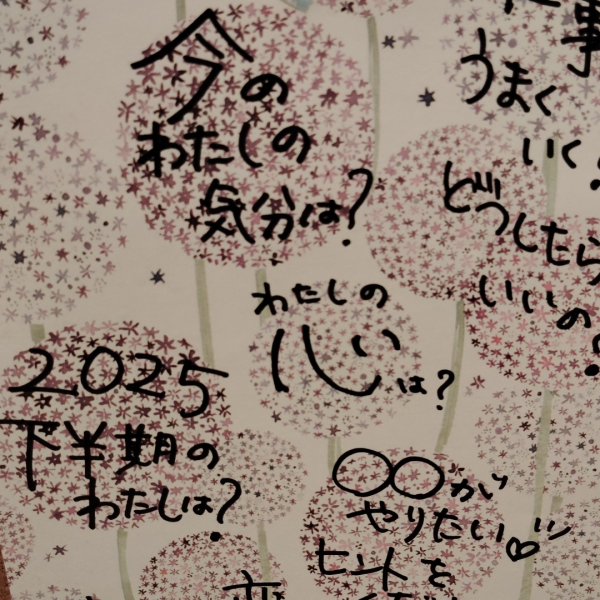 今の
わたしの
気分は?
事
うまく
いく
どうしたら
いいの
わたしの
心は?
2025
下半期の
わたしは?
○○が
やりたい♡
ヒントを